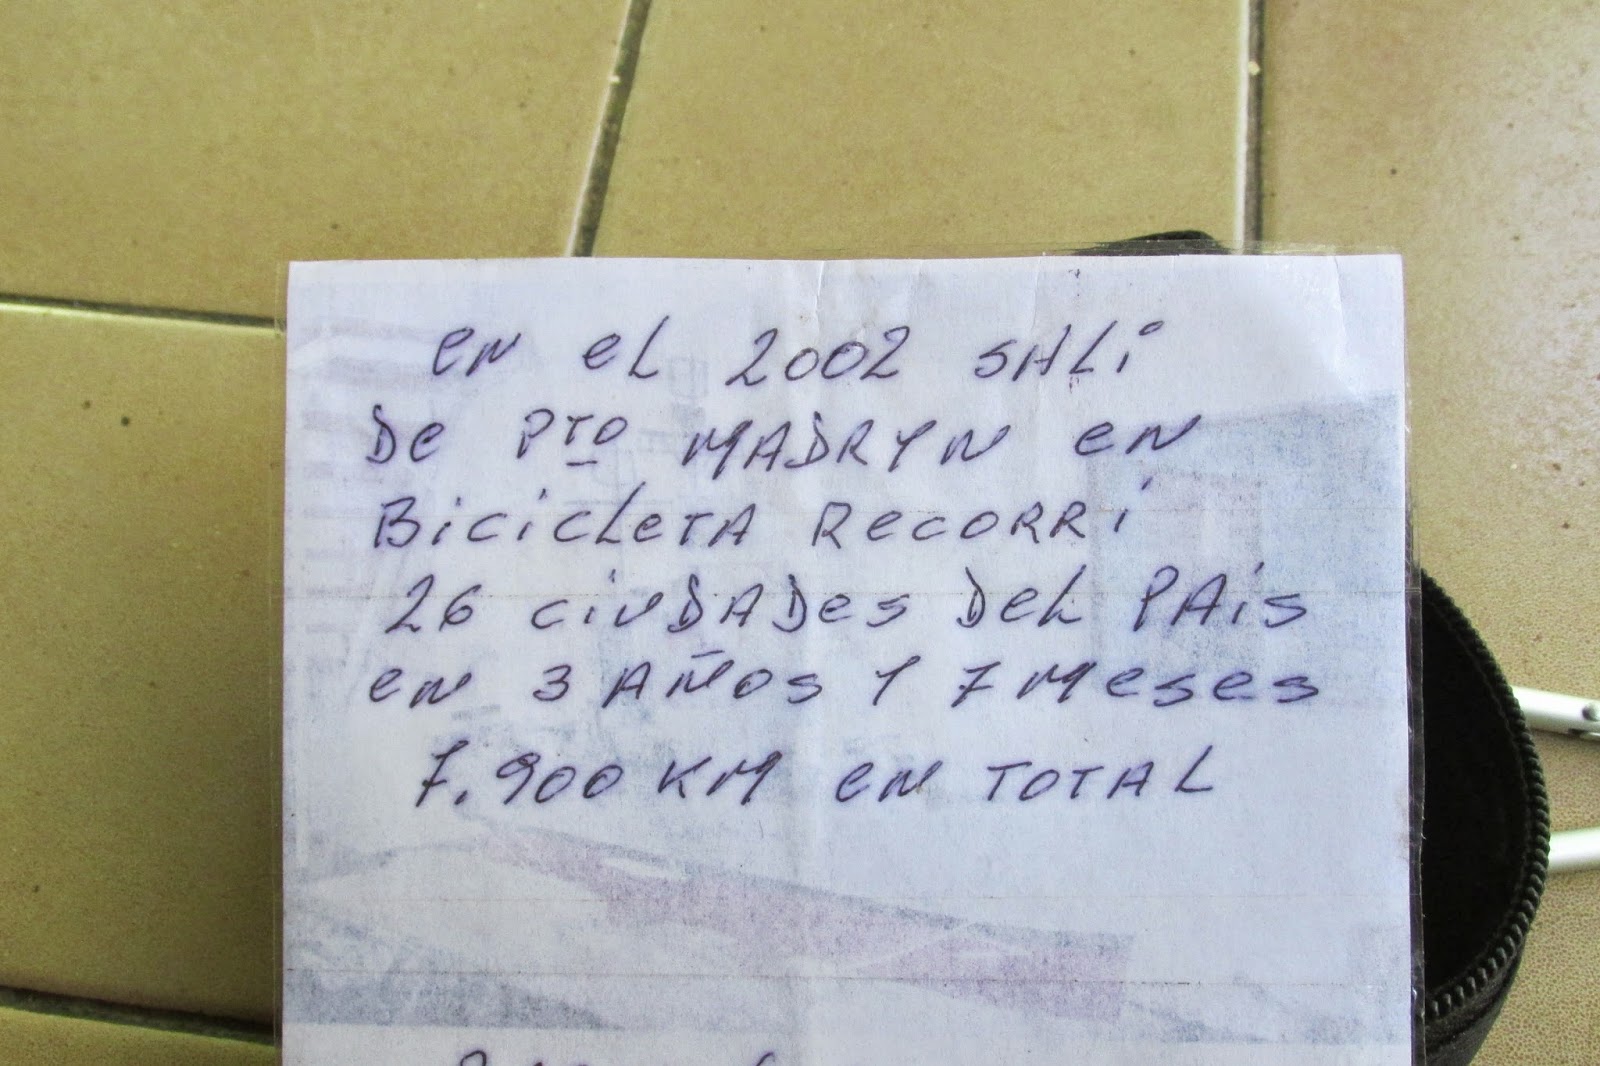 en eL 2002 SALí
De Pto MADRYN en
BicicLeTA RecoRRí
26 ciuDADes DeL PAis
en 3 AÑOS Y 7 Meses
7.900 KM en TOTAL